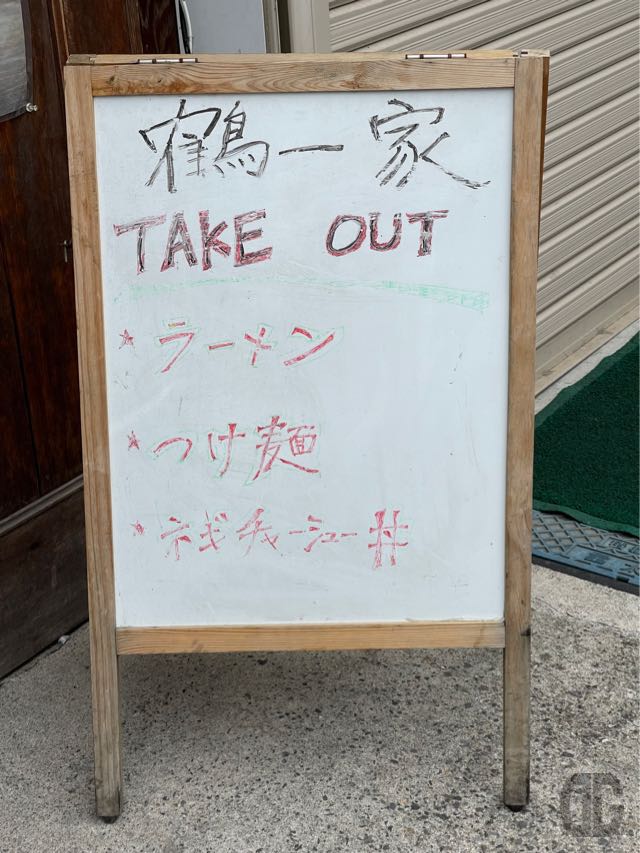 鶴一家
TAKE OUT
* ラーメン
* つけ麺
* ネギチャーシュー丼